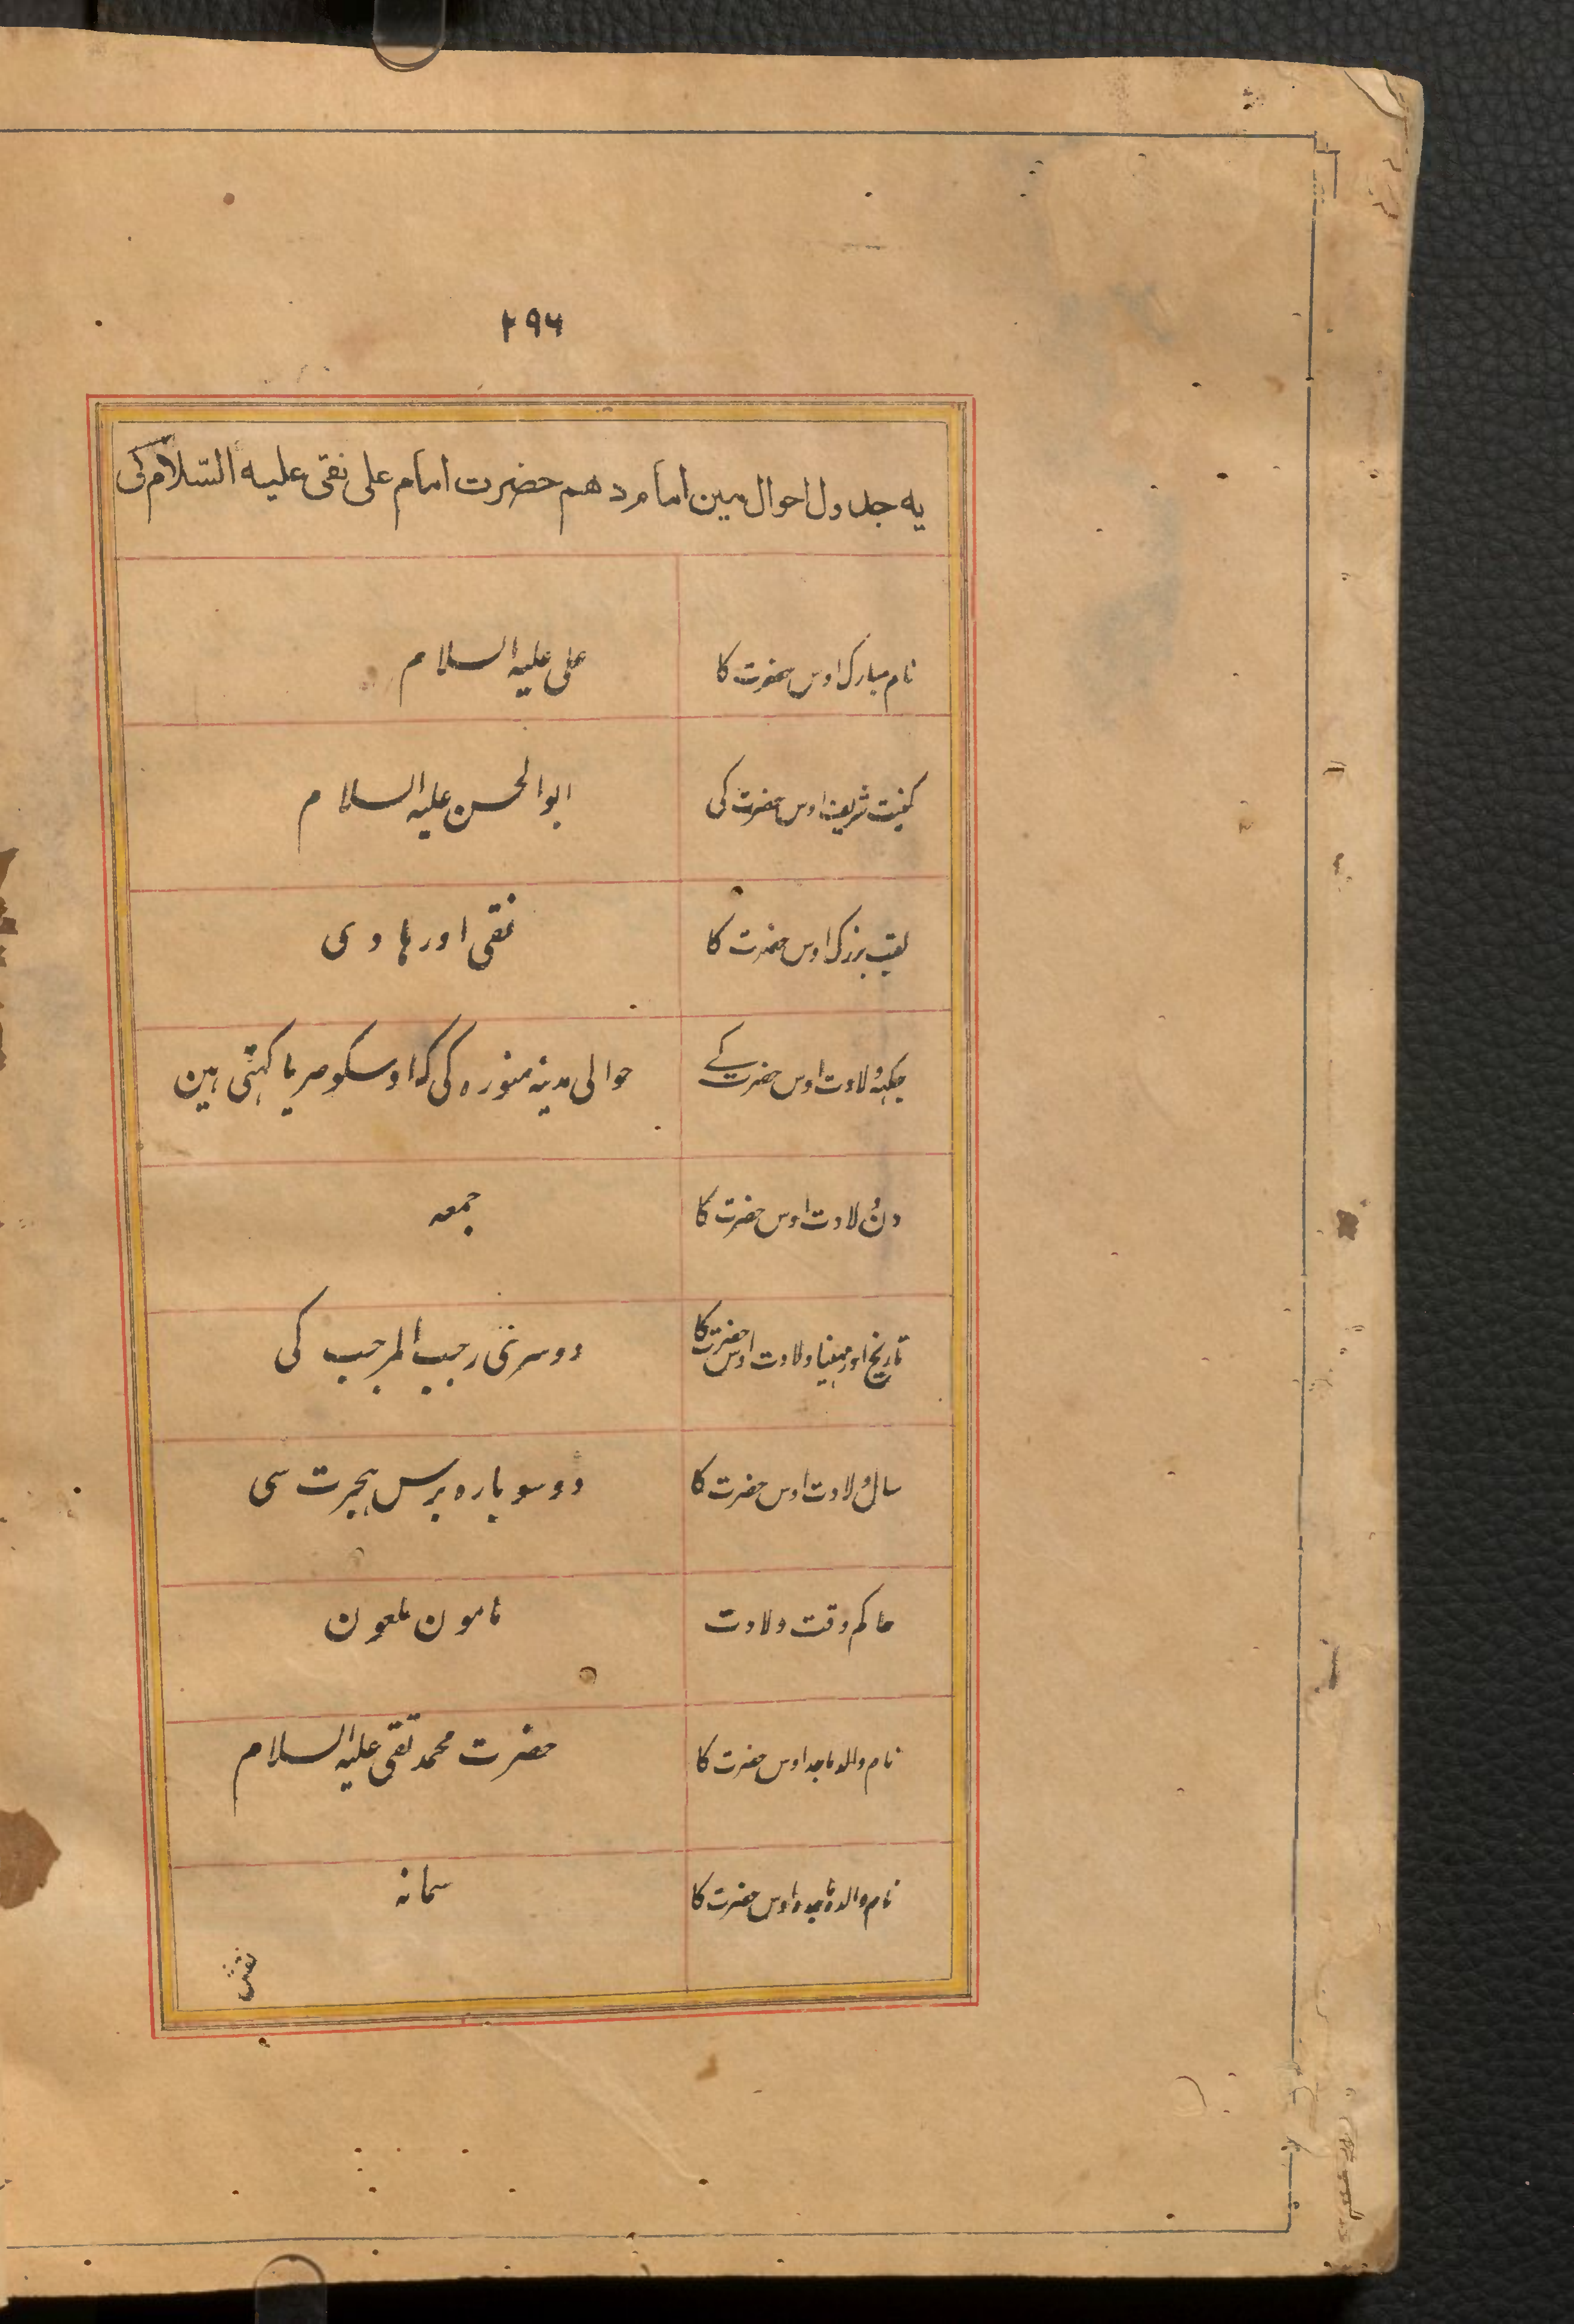 ۲۹۶
یه جدول احوال مین امام دهم حضرت امام علی نقی علیه السّلام کی
نام مبارک اوس حضرت کا
علی علیه السلام
کنیت شریف اوس حضرت کی
ابوالحسن علیه السلام
لقب بزرک اوس حضرت کا
نقی اور هادی
جکهه ولادت اوس حضرت کے
حوالی مدینه منوره کی که اوسکو صریا کهتی هین
دن ولادت اوس حضرت کا
جمعه
تاریخ اور مهینا ولادت اوس حضرت کا
دوسری رجب المرجب کی
سال ولادت اوس حضرت کا
دو سو باره برس هجرت سی
حاکم وقت ولادت
مامون ملعون
نام والد ماجد اوس حضرت کا
حضرت محمد تقی علیه السلام
نام والده ماجده اوس حضرت کا
سمانه
نقش